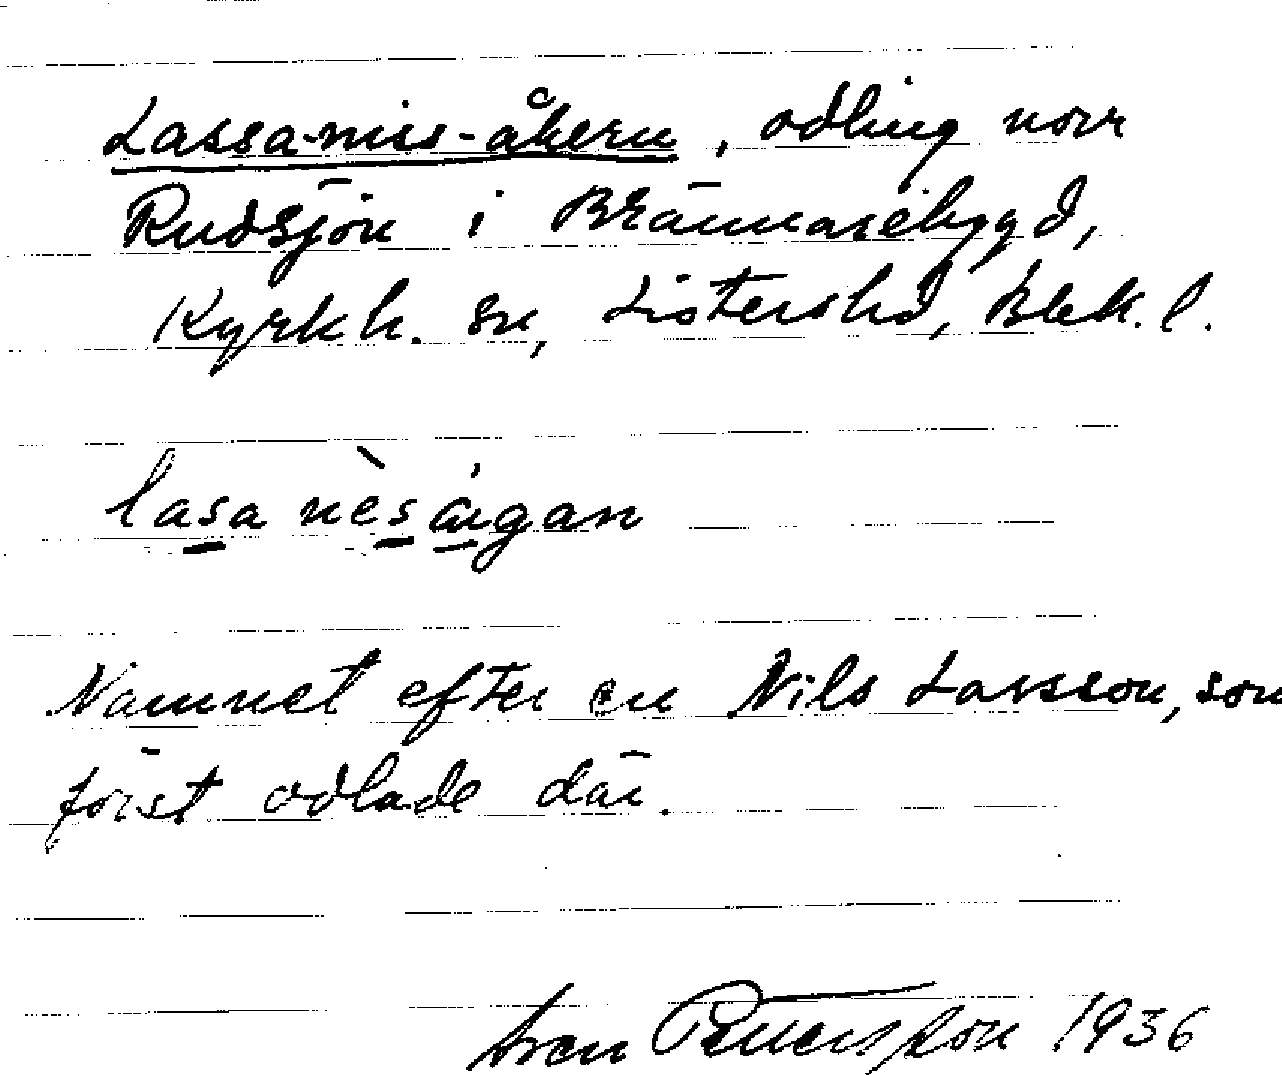 Lassa-niss-åkern, odling norr
Rudsjön i Brännarebygd,
Kyrkh. sn, Listershd, Blek. l.
lasa nès áigan
Namnet efter en Nils Larsson, som
först odlade där.
Sven Pettersson 1936